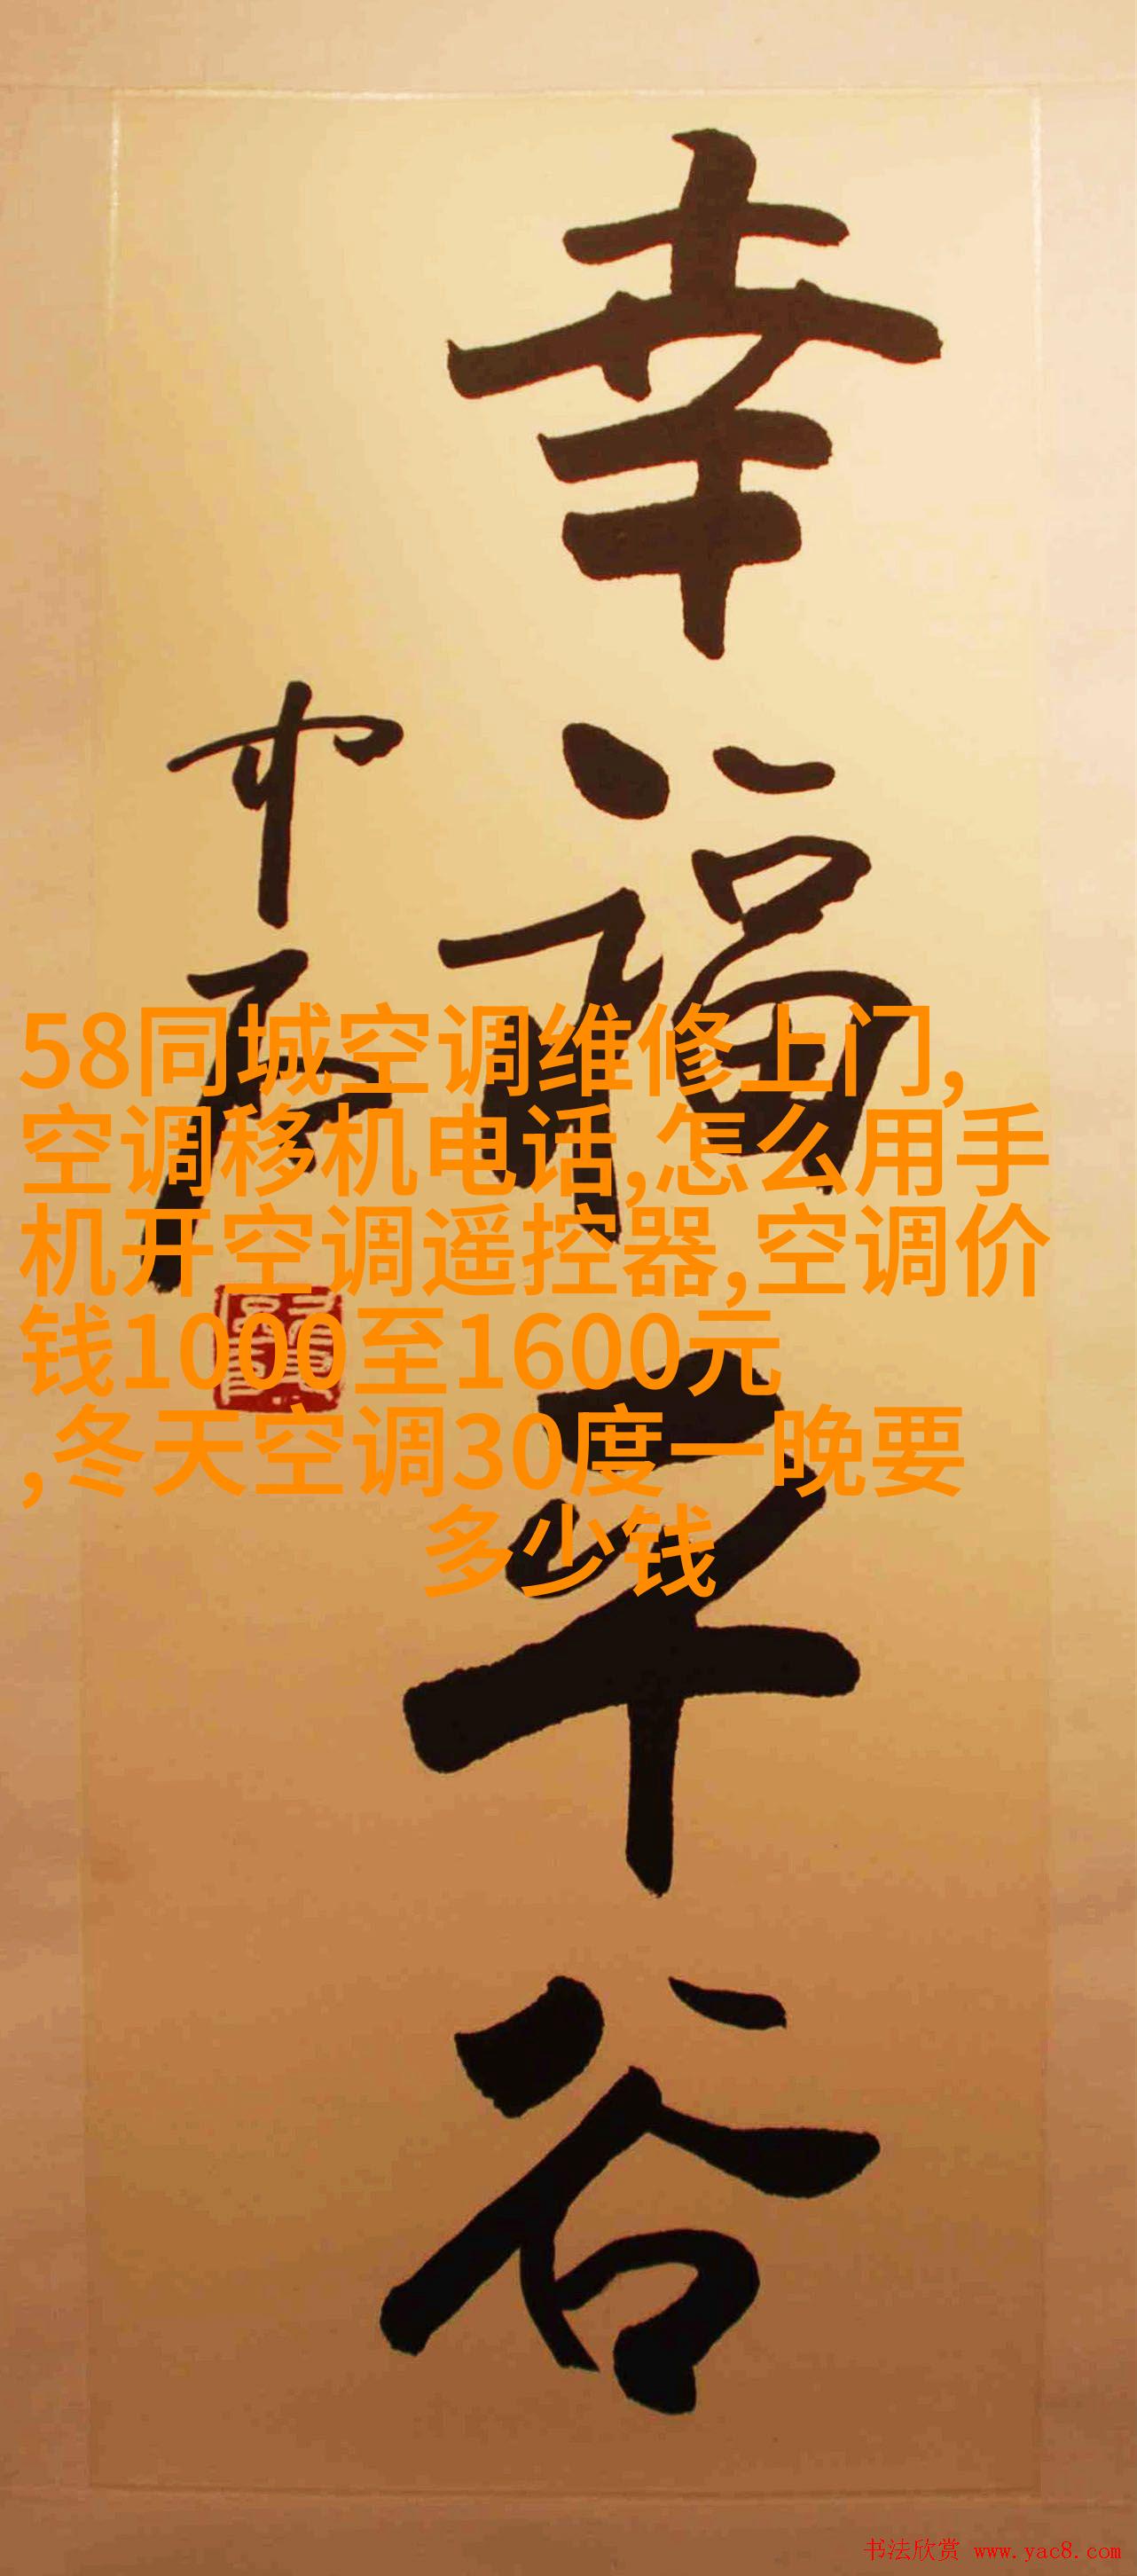 幸福平谷
中石
58同城空调维修上门,
空调移机电话,怎么用手
机开空调遥控器,空调价
钱1000至1600元
,冬天空调30度一晚要
多少钱
书法欣赏 www.yac8.com